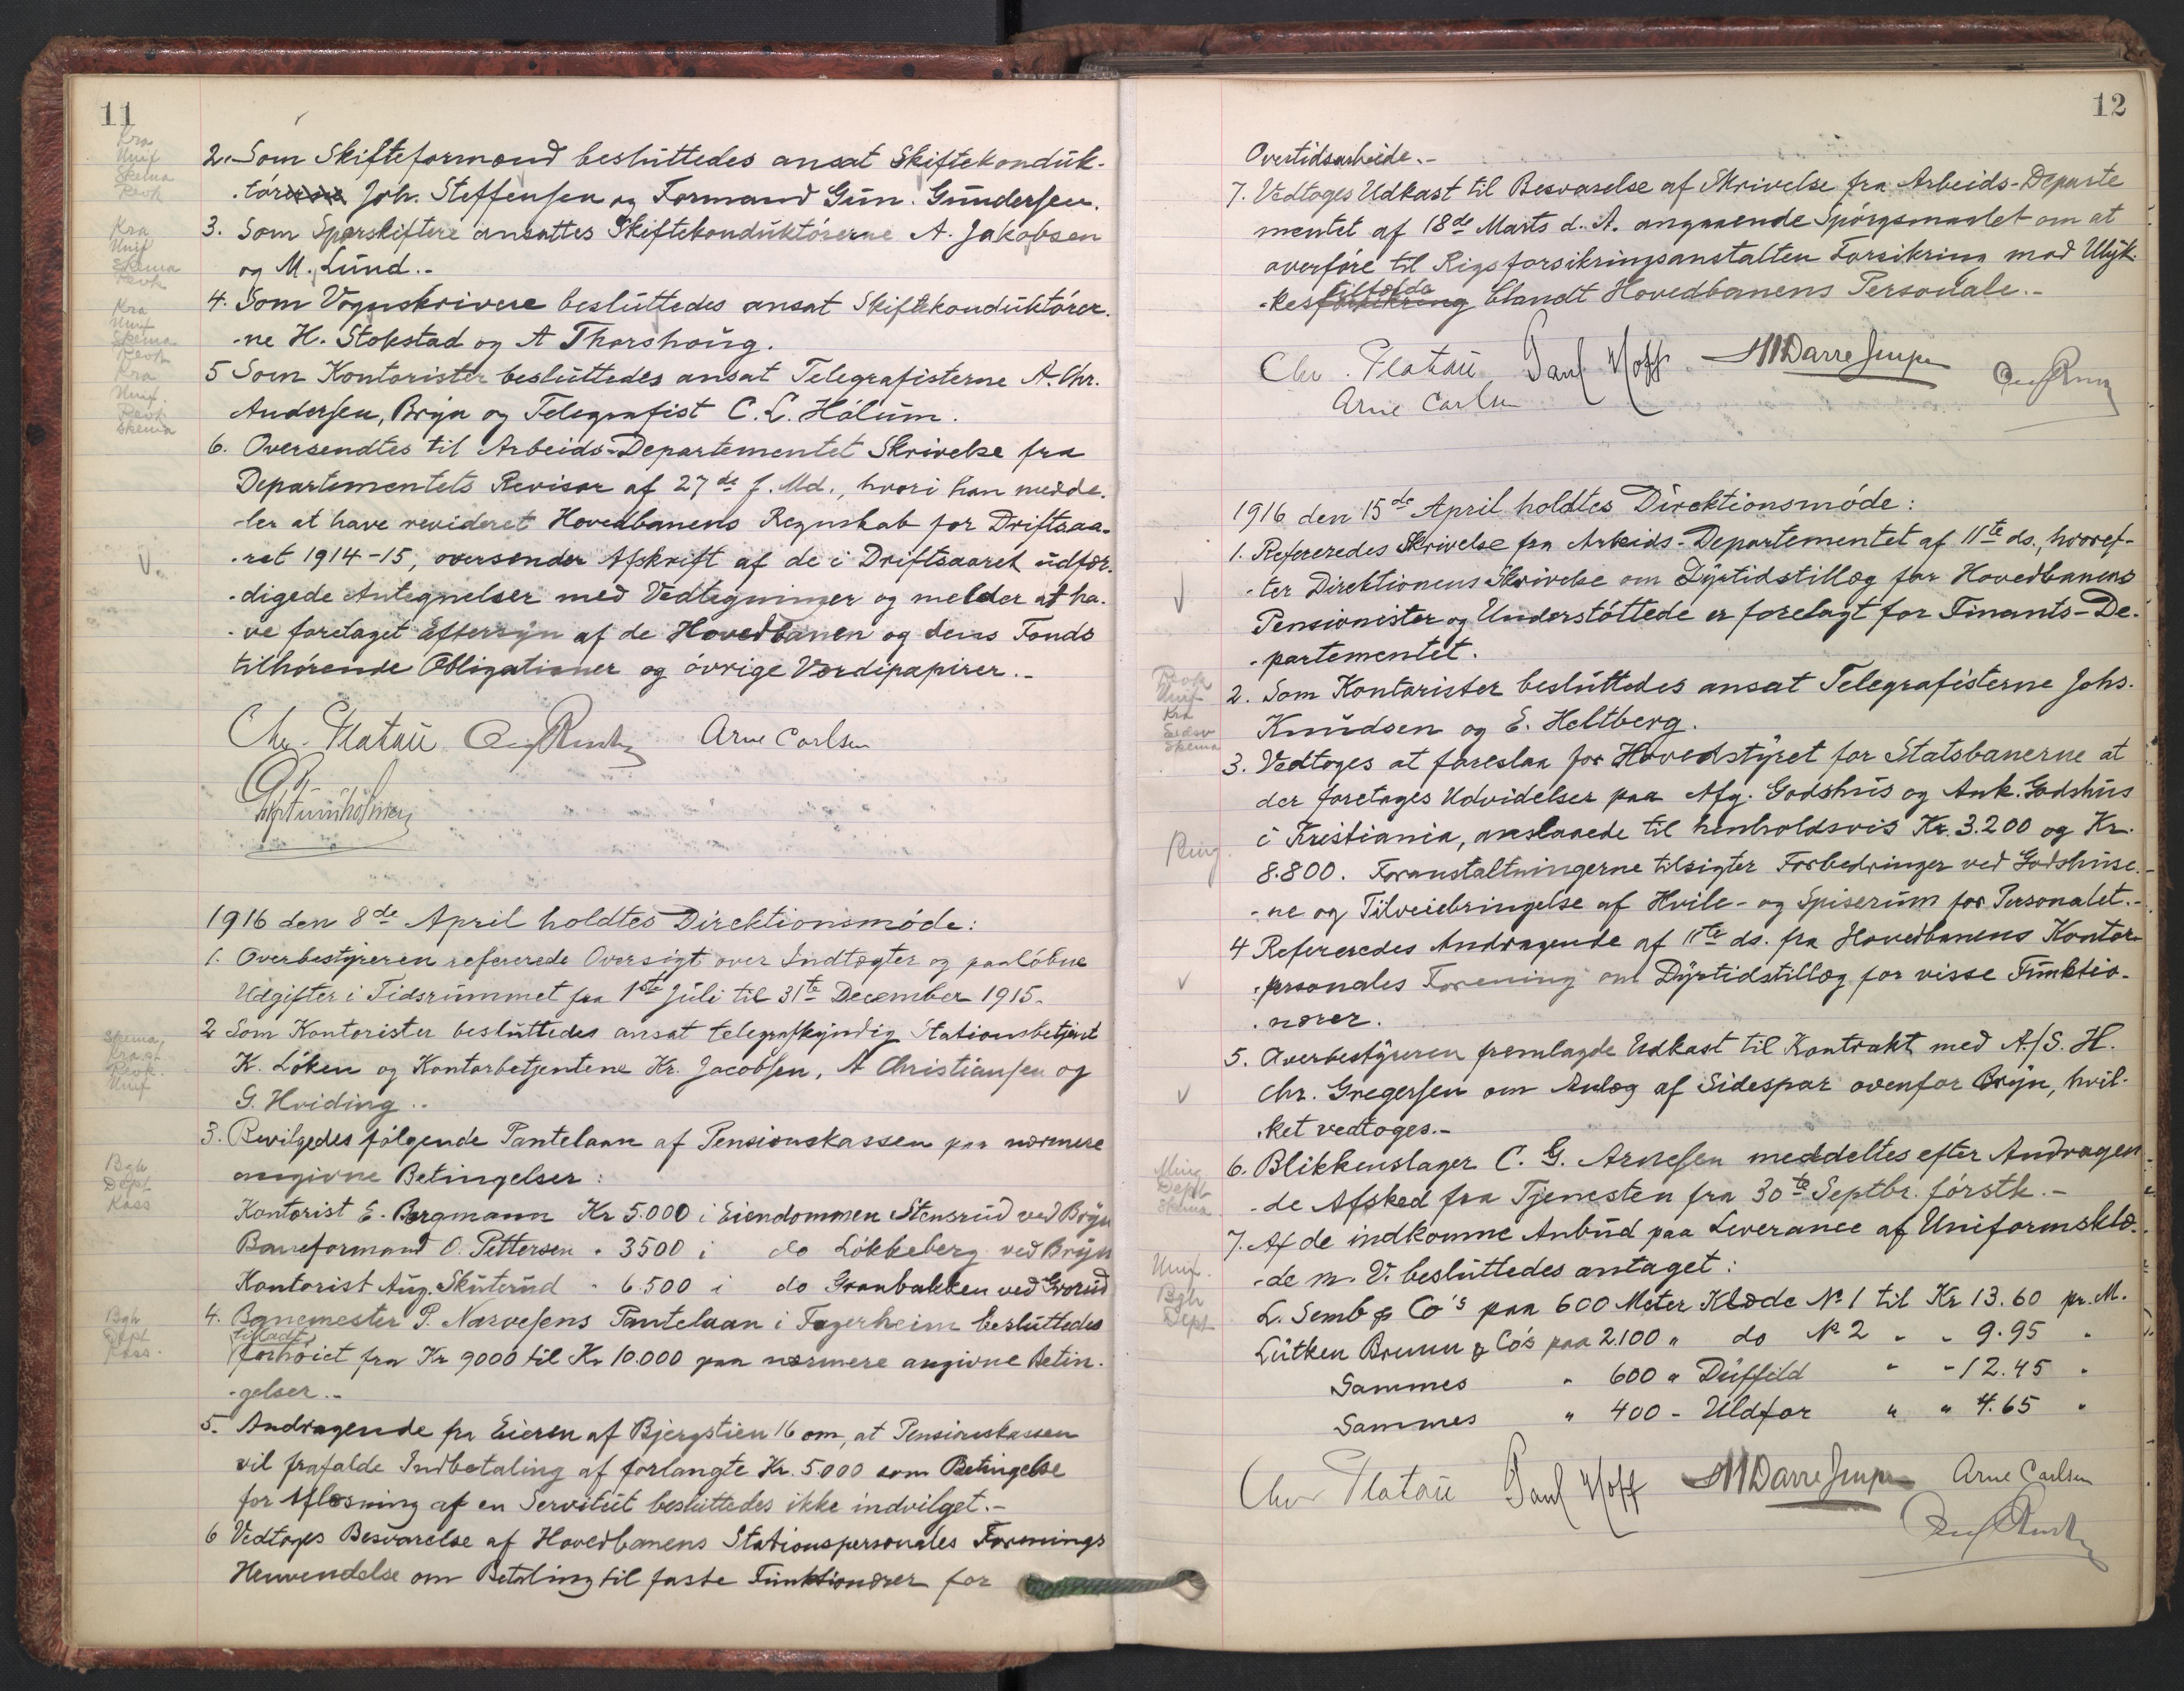 11
Kra
Unif
Skema
Revk
2. Som Skifteformænd besluttedes ansat Skiftekonduk-
-tør Joh. Steffensen og Formand Gun. Gundersen.
Kra
Unif
Skema
Revk
3. Som Sporskiftere ansattes Skiftekonduktørerne A. Jakobsen
og M. Lund.-
Kra
Unif
Skema
Revk
4. Som Vognskrivere besluttedes ansat Skiftekonduktører-
-ne H. Stokstad og A Thorshaug.
Kra
Unif.
Revk
Skema
5 Som Kontorister besluttedes ansat Telegrafisterne A. Chr.
Andersen, Bryn og Telegrafist C. L. Hólum.
6. Oversendtes til Arbeids-Departementet Skrivelse fra
Departementets Revisor af 27de f. Md., hvori han medde-
-ler at have revideret Hovedbanens Regnskab for Driftsaa-
V.
-ret 1914-15, oversender Afskrift af de i Driftsaaret udfær-
-digede Antegnelser med Vedtegninger og melder at ha-
-ve foretaget Eftersyn af de Hovedbanen og dens Fonds
tilhørende Obligationer og øvrige Værdipapirer.-
Chr. Platou Arne Carlsen
1916 den 8de April holdtes Direktionsmøde:
1. Overbestyreren refererede Oversigt over Indtægter og paaløbne
Udgifter i Tidsrummet fra 1ste Juli til 31te December 1915.
Skema,
Kra st.
Revk.
Unif
2 Som Kontorister besluttedes ansat telegrafkyndig Stationsbetjent
K. Løken og Kontorbetjentene Kr. Jacobsen, A Christiansen og
G. Hviding..
3. Bevilgedes følgende Pantelaan af Pensionskassen paa nærmere
Bgh
Dept
Kass
angivne Betingelser:
Kontorist E. Borgmann Kr 5.000 i Eiendommen Stensrud ved Bryn
Baneformand O. Pettersen " 3500 i do Løkkeberg ved Bryn
Kontorist Aug. Skuterud " 6.500 i do Granbakken ved Grorud
Bgh
Dept
Kass.
4. Banemester P. Narvesens Pantelaan i Fagerheim besluttedes
tilladt
forhøiet fra Kr 9000 til Kr 10.000 paa nærmere angivne Betin-
-gelser.-
5. Andragende fra Eieren af Bjergstien 16 om, at Pensionskassen
vil frafalde Indbetaling af forlangte Kr. 5.000 som Betingelse
for Afløsning af en Servitut besluttedes ikke indvilget.-
6 Vedtoges Besvarelse af Hovedbanens Stationspersonales Forenings
Henvendelse om Betaling til faste Funktionærer for
12
Overtidsarbeide.-
7. Vedtoges Udkast til Besvarelse af Skrivelse fra Arbeids-Departe
mentet af 18de Marts d. A. angaaende Spørgsmaalet om at
overføre til Rigsforsikringsanstalten Forsikring mod Ulyk-
tilfælde
-kesforsikring blandt Hovedbanens Personale.-
Chr. Platou Paul Hoff
Arne Carlsen
1916 den 15de April holdtes Direktionsmøde:
1. Refereredes Skrivelse fra Arbeids-Departementet af 11te ds., hvoref-
V
-ter Direktionens Skrivelse om Dyrtidstillæg for Hovedbanens
Pensionister og Understøttede er forelagt for Finants-De-
-partementet.
Revk
Unif
Kra
Eidsv
Skema
2. Som Kontorister besluttedes ansat Telegrafisterne Johs.
Knudsen og E. Heltberg.
3. Vedtoges at foreslaa for Hovedstyret for Statsbanerne at
der foretages Udvidelser paa Afg. Godshus og Ank. Godshus
i Kristiania, anslaaede til henholdsvis Kr. 3.200 og Kr.
8.800. Foranstaltningerne tilsigter Forbedringer ved Godshuse-
-ne og Tilveiebringelse af Hvile- og Spiserum for Personalet.-
4 Refereredes Andragende af 11te ds. fra Hovedbanens Kontor-
V
-personales Forening om Dyrtidstillæg for visse Funktio-
-nærer.
5. Overbestyreren fremlagde Udkast til Kontrakt med A/S. H.
V
Chr. Gregersen om Anlæg af Sidespor ovenfor Bryn, hvil-
-ket vedtoges.-
Ming
Dept
Skema
6. Blikkenslager C. G. Arnesen meddeltes efter Andragen-
-de Afsked fra Tjenesten fra 30te Septbr. førstk.-
7. Af de indkomne Anbud paa Leverance af Uniformsklæ-
Unif.
Bgh
Dept
-de m. V. besluttedes antaget:
L. Semb & Co's paa 600 Meter Klæde No 1 til Kr 13.60 pr. M.
Lütken Bruun & Co's paa 2.100 " do No 2 " " 9.95 "
Sammes " 600 " Düffild " " 12.45 "
Sammes " 400 - Uldfor " " 4.65 "
Chr Platou Paul Hoff Arne Carlsen